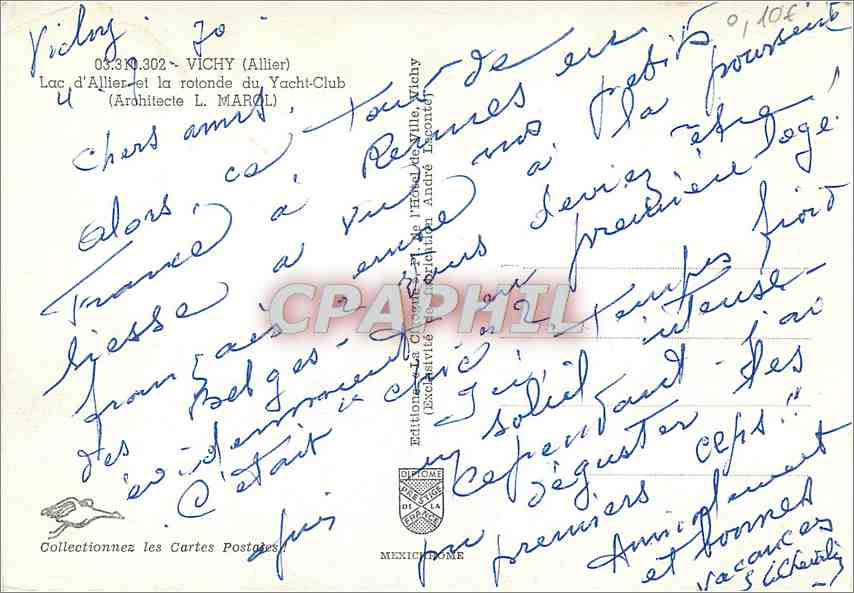 0,10€
Vichy 70
03.310.302 - VICHY (Allier)
Lac d'Allier et la rotonde du Yacht-Club
(Architecte L. MAROL)
Chers amis,
Alors, ce Tour de
France à Rennes en
liesse a vu nos petits
français à la poursuite
des Belges - Vous deviez être
évidemment en première loge !
C'était "chic" ?
Ici, temps froid
un soleil intense -
Cependant - J'ai
pu déguster les
premiers ceps !!
Amicalement
et bonnes
vacances
Editions « La Cigogne », de l'Hôtel de Ville, Vichy
(Exclusivité de fabrication André Leconte)
CPAPHIL
DIPLOME
PRESTIGE
DE LA
FRANCE
MEXICHROME
Collectionnez les Cartes Postales !